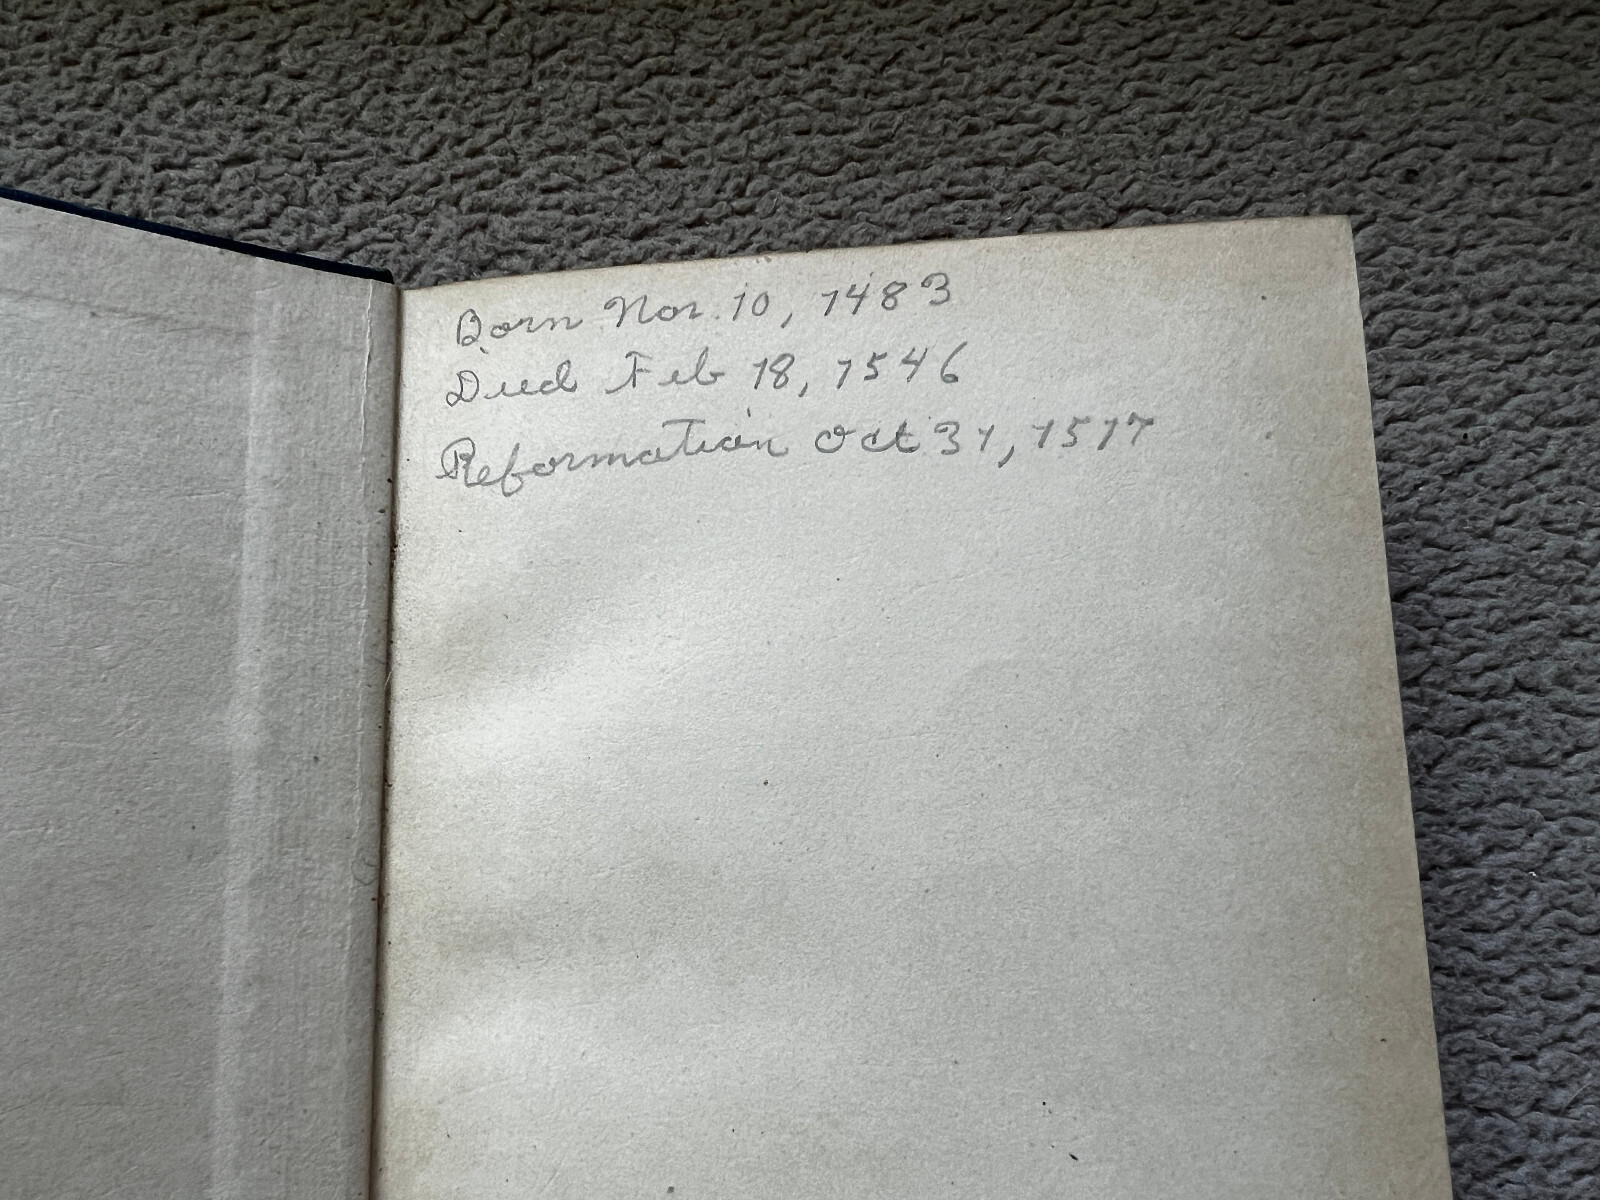 Born Nov. 10, 1483
Died Feb 18, 1546
Reformation Oct 31, 1517